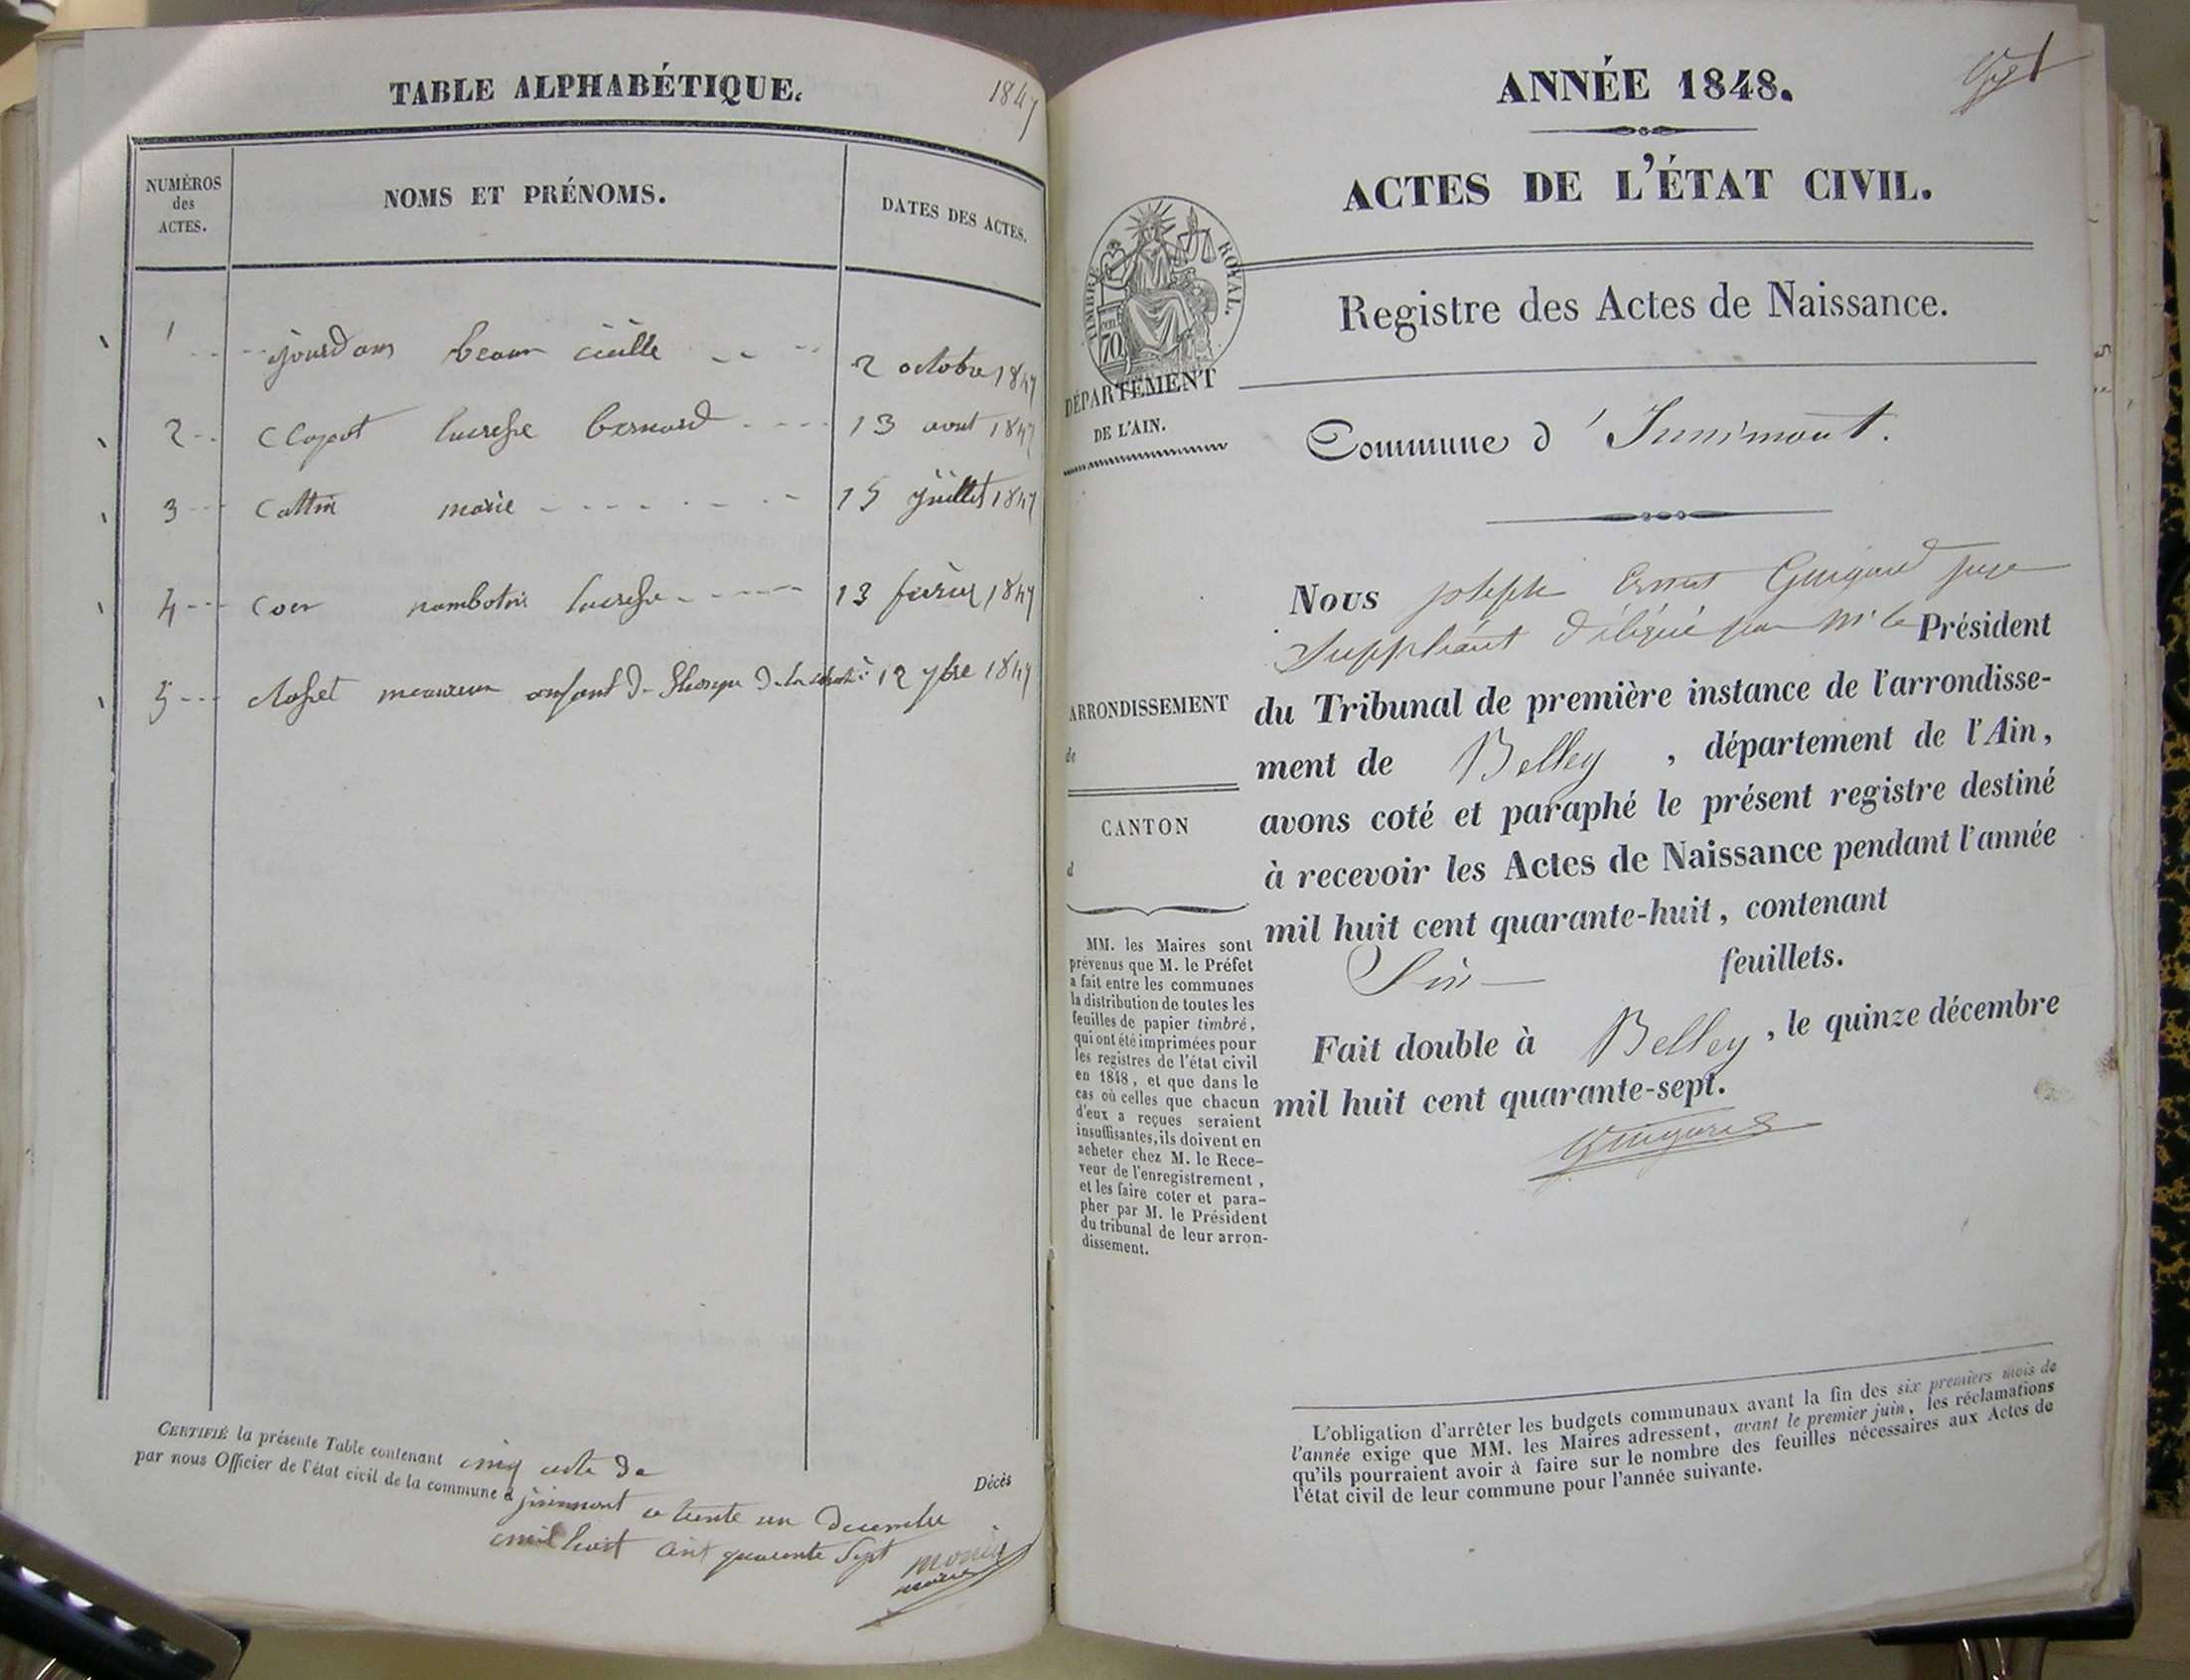 TABLE ALPHABÉTIQUE.
1847
NUMÈROS
des
ACTES.
NOMS ET PRÉNOMS.
DATES DES ACTES.
1
2 octobre 1847
2 Clapot lucresse bernard 13 aout 1847
3 Cattin marie 15 juillet 1847
4 lucresse 13 1847
5 enfant de de la 12 7bre 1847
CERTIFIÉ la présente Table contenant cinq acte de
Décès
par nous Officier de l'état civil de la commune d
ce trente un decembre
mil huit cent quarante Sept
monin
maire
ANNÉE 1848.
1
ACTES DE L'ÉTAT CIVIL.
TIMBRE ROYAL.
70
Registre des Actes de Naissance.
DÉPARTEMENT
DE L'AIN.
Commune d'Innimont.
Nous joseph Ernest Guigard juge
Suppléant délégué par Mr le Président
ARRONDISSEMENT
de
du Tribunal de première instance de l'arrondisse-
ment de Belley, département de l'Ain,
CANTON
d
avons coté et paraphé le présent registre destiné
à recevoir les Actes de Naissance pendant l'année
mil huit cent quarante-huit, contenant
Six feuillets.
Fait double à Belley, le quinze décembre
mil huit cent quarante-sept.
Guigard
MM. les Maires sont
prévenus que M. le Préfet
a fait entre les communes
la distribution de toutes les
feuilles de papier timbré,
qui ont été imprimées pour
les registres de l'état civil
en 1848, et que dans le
cas où celles que chacun
d'eux a reçues seraient
insuffisantes, ils doivent en
acheter chez M. le Rece-
veur de l'enregistrement,
et les faire coter et para-
pher par M. le Président
du tribunal de leur arron-
dissement.
L'obligation d'arrêter les budgets communaux avant la fin des six premiers mois de
l'année exige que MM. les Maires adressent, avant le premier juin, les réclamations
qu'ils pourraient avoir à faire sur le nombre des feuilles nécessaires aux Actes de
l'état civil de leur commune pour l'année suivante.